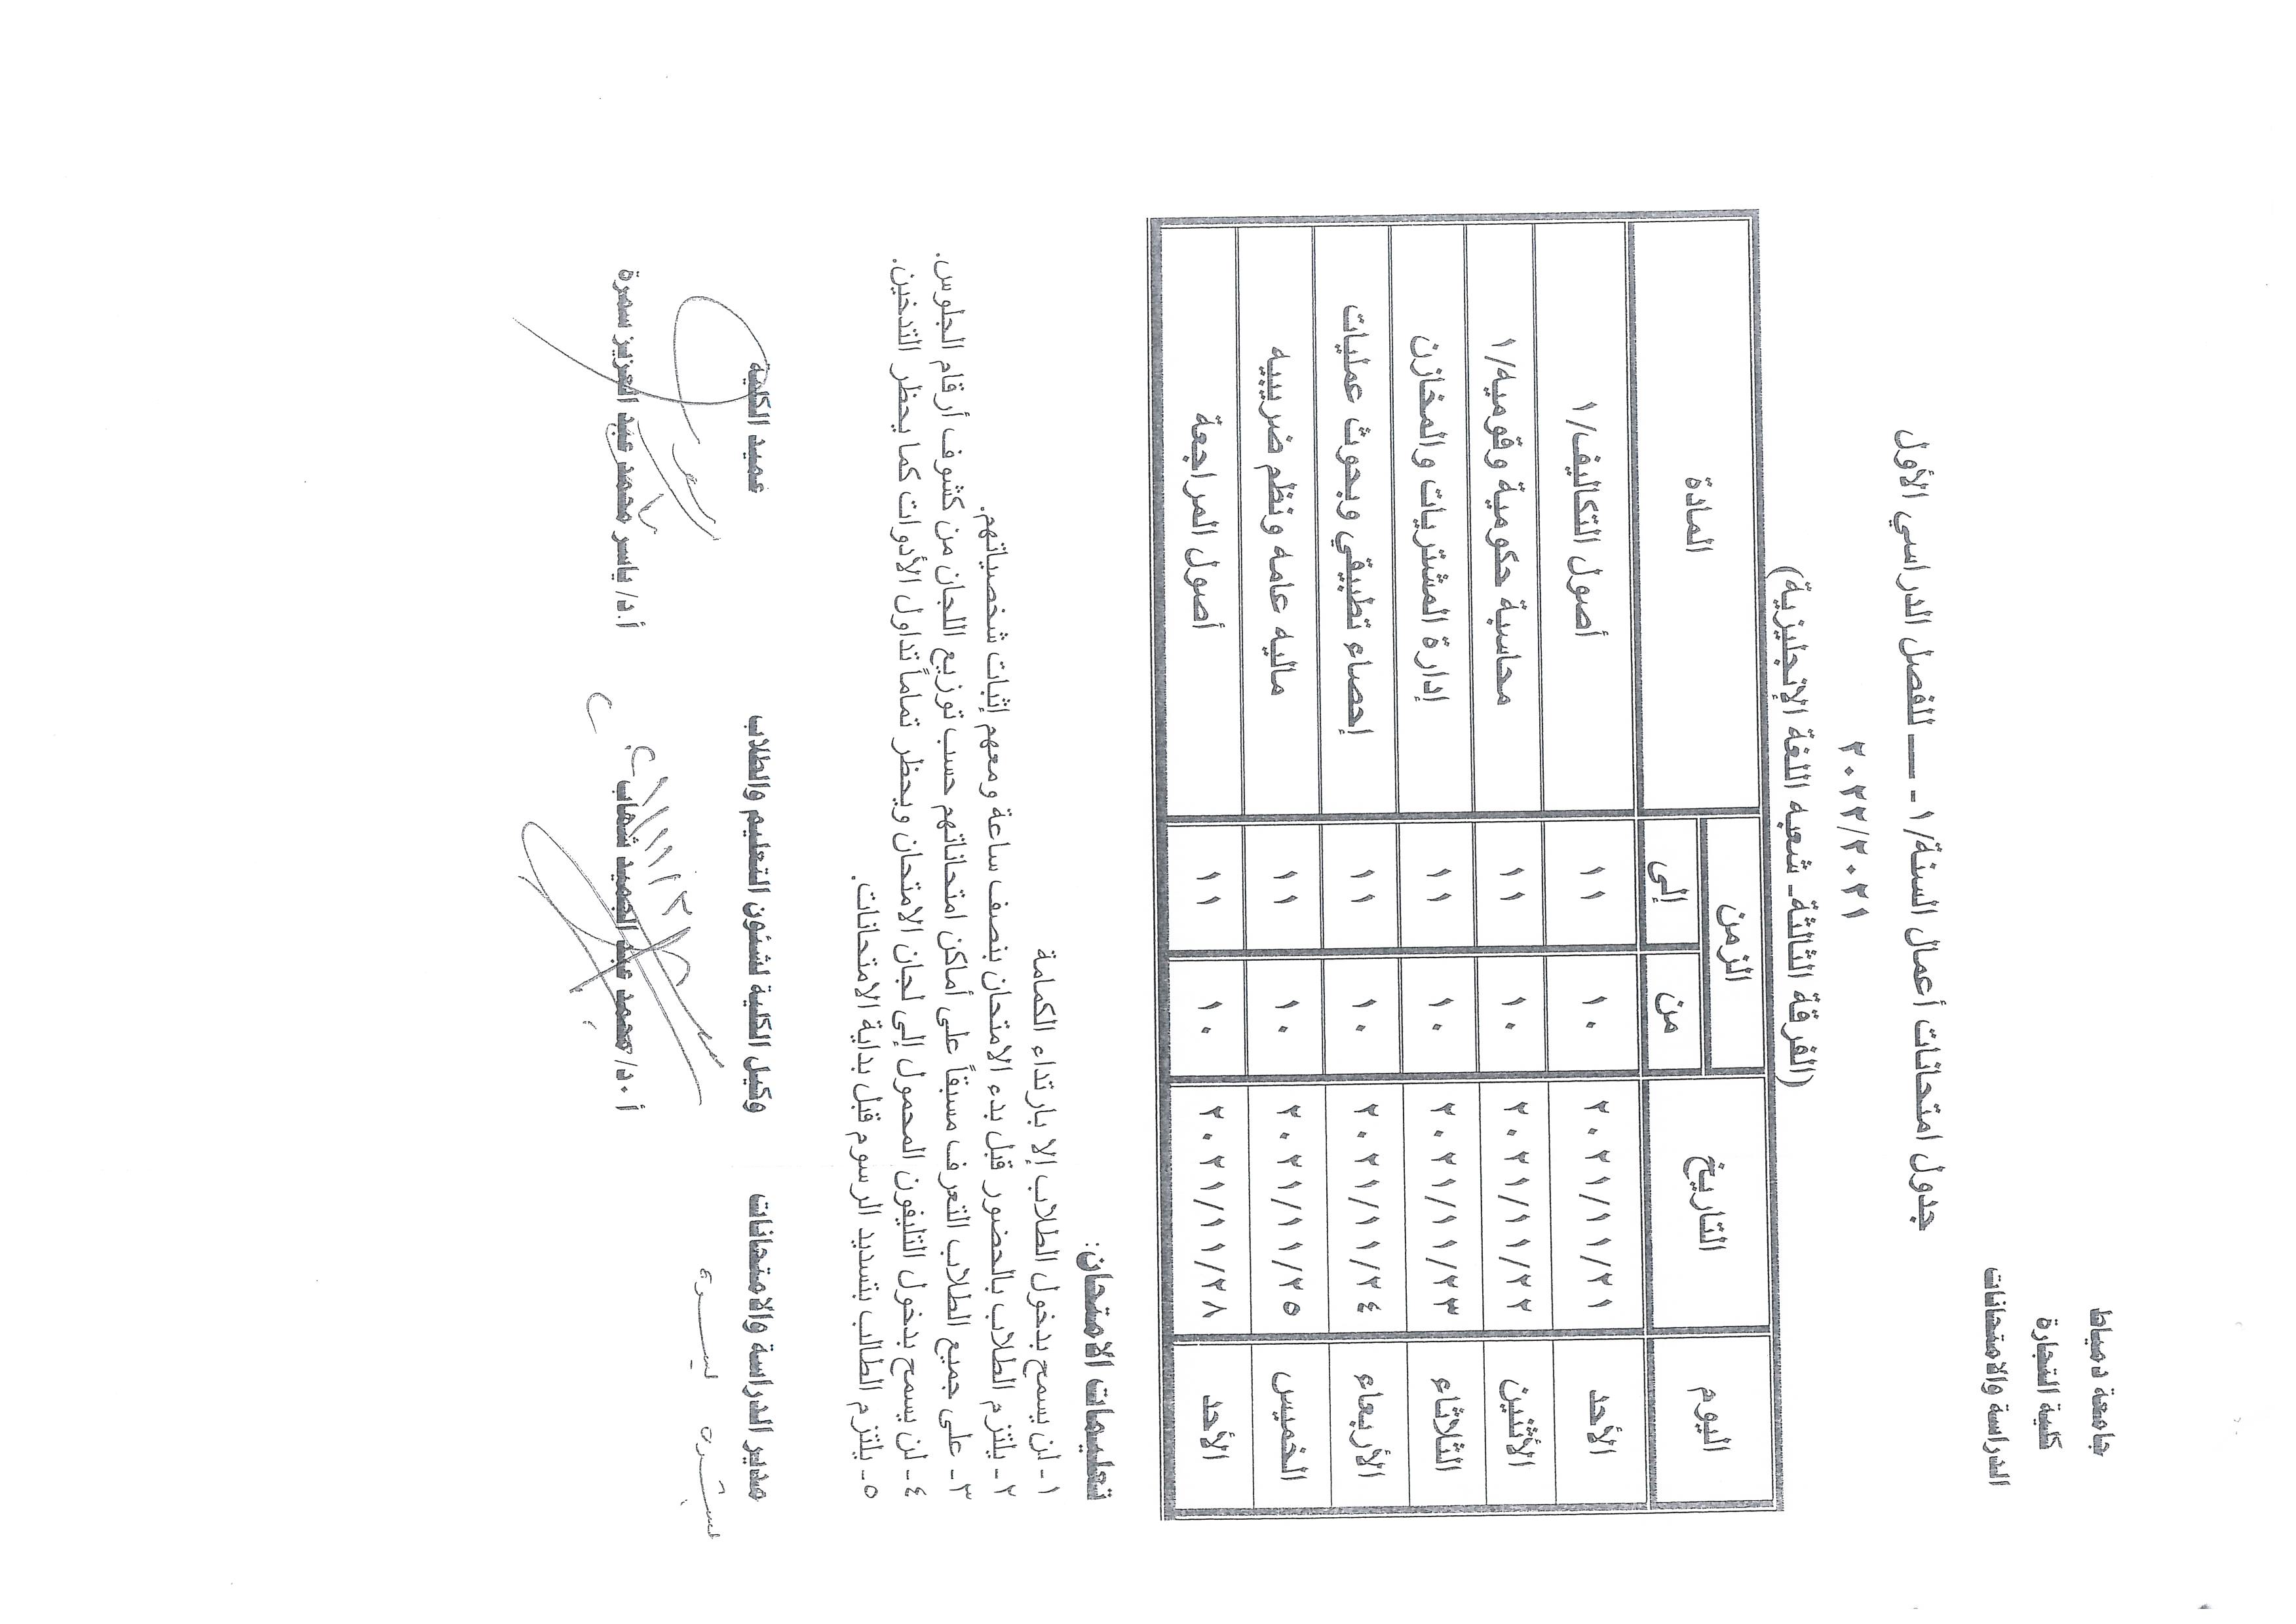 جامعة دمياط
كلية التجارة
الدراسة والامتحانات
جدول امتحانات أعمال السنة/١ - ــــ للفصل الدراسي الأول
٢٠٢٢/٢٠٢١
(الفرقة الثالثة- شعبه اللغة الإنجليزية)
اليوم التاريخ الزمن المادة
من إلى
الأحد ٢٠٢١/١١/٢١ ١٠ ١١ أصول التكاليف/١
الأثنين ٢٠٢١/١١/٢٢ ١٠ ١١ محاسبة حكومية وقوميه/١
الثلاثاء ٢٠٢١/١١/٢٣ ١٠ ١١ إدارة المشتريات والمخازن
الأربعاء ٢٠٢١/١١/٢٤ ١٠ ١١ إحصاء تطبيقي وبحوث عمليات
الخميس ٢٠٢١/١١/٢٥ ١٠ ١١ ماليه عامه ونظم ضريبيه
الأحد ٢٠٢١/١١/٢٨ ١٠ ١١ أصول المراجعة
تعليمات الامتحان:
١- لن يسمح بدخول الطلاب إلا بارتداء الكمامة
٢- يلتزم الطلاب بالحضور قبل بدء الامتحان بنصف ساعة ومعهم إثبات شخصياتهم.
٣- على جميع الطلاب التعرف مسبقاً على أماكن امتحاناتهم حسب توزيع اللجان من كشوف أرقام الجلوس.
٤- لن يسمح بدخول التليفون المحمول إلى لجان الامتحان ويحظر تماماً تداول الأدوات كما يحظر التدخين.
٥- يلتزم الطالب بتسديد الرسوم قبل بداية الامتحانات.
مدير الدراسة والامتحانات وكيل الكلية لشئون التعليم والطلاب عميد الكلية
أ.د/محمد عبد الحميد شهاب أ.د/ ياسر محمد عبد العزيز سمرة